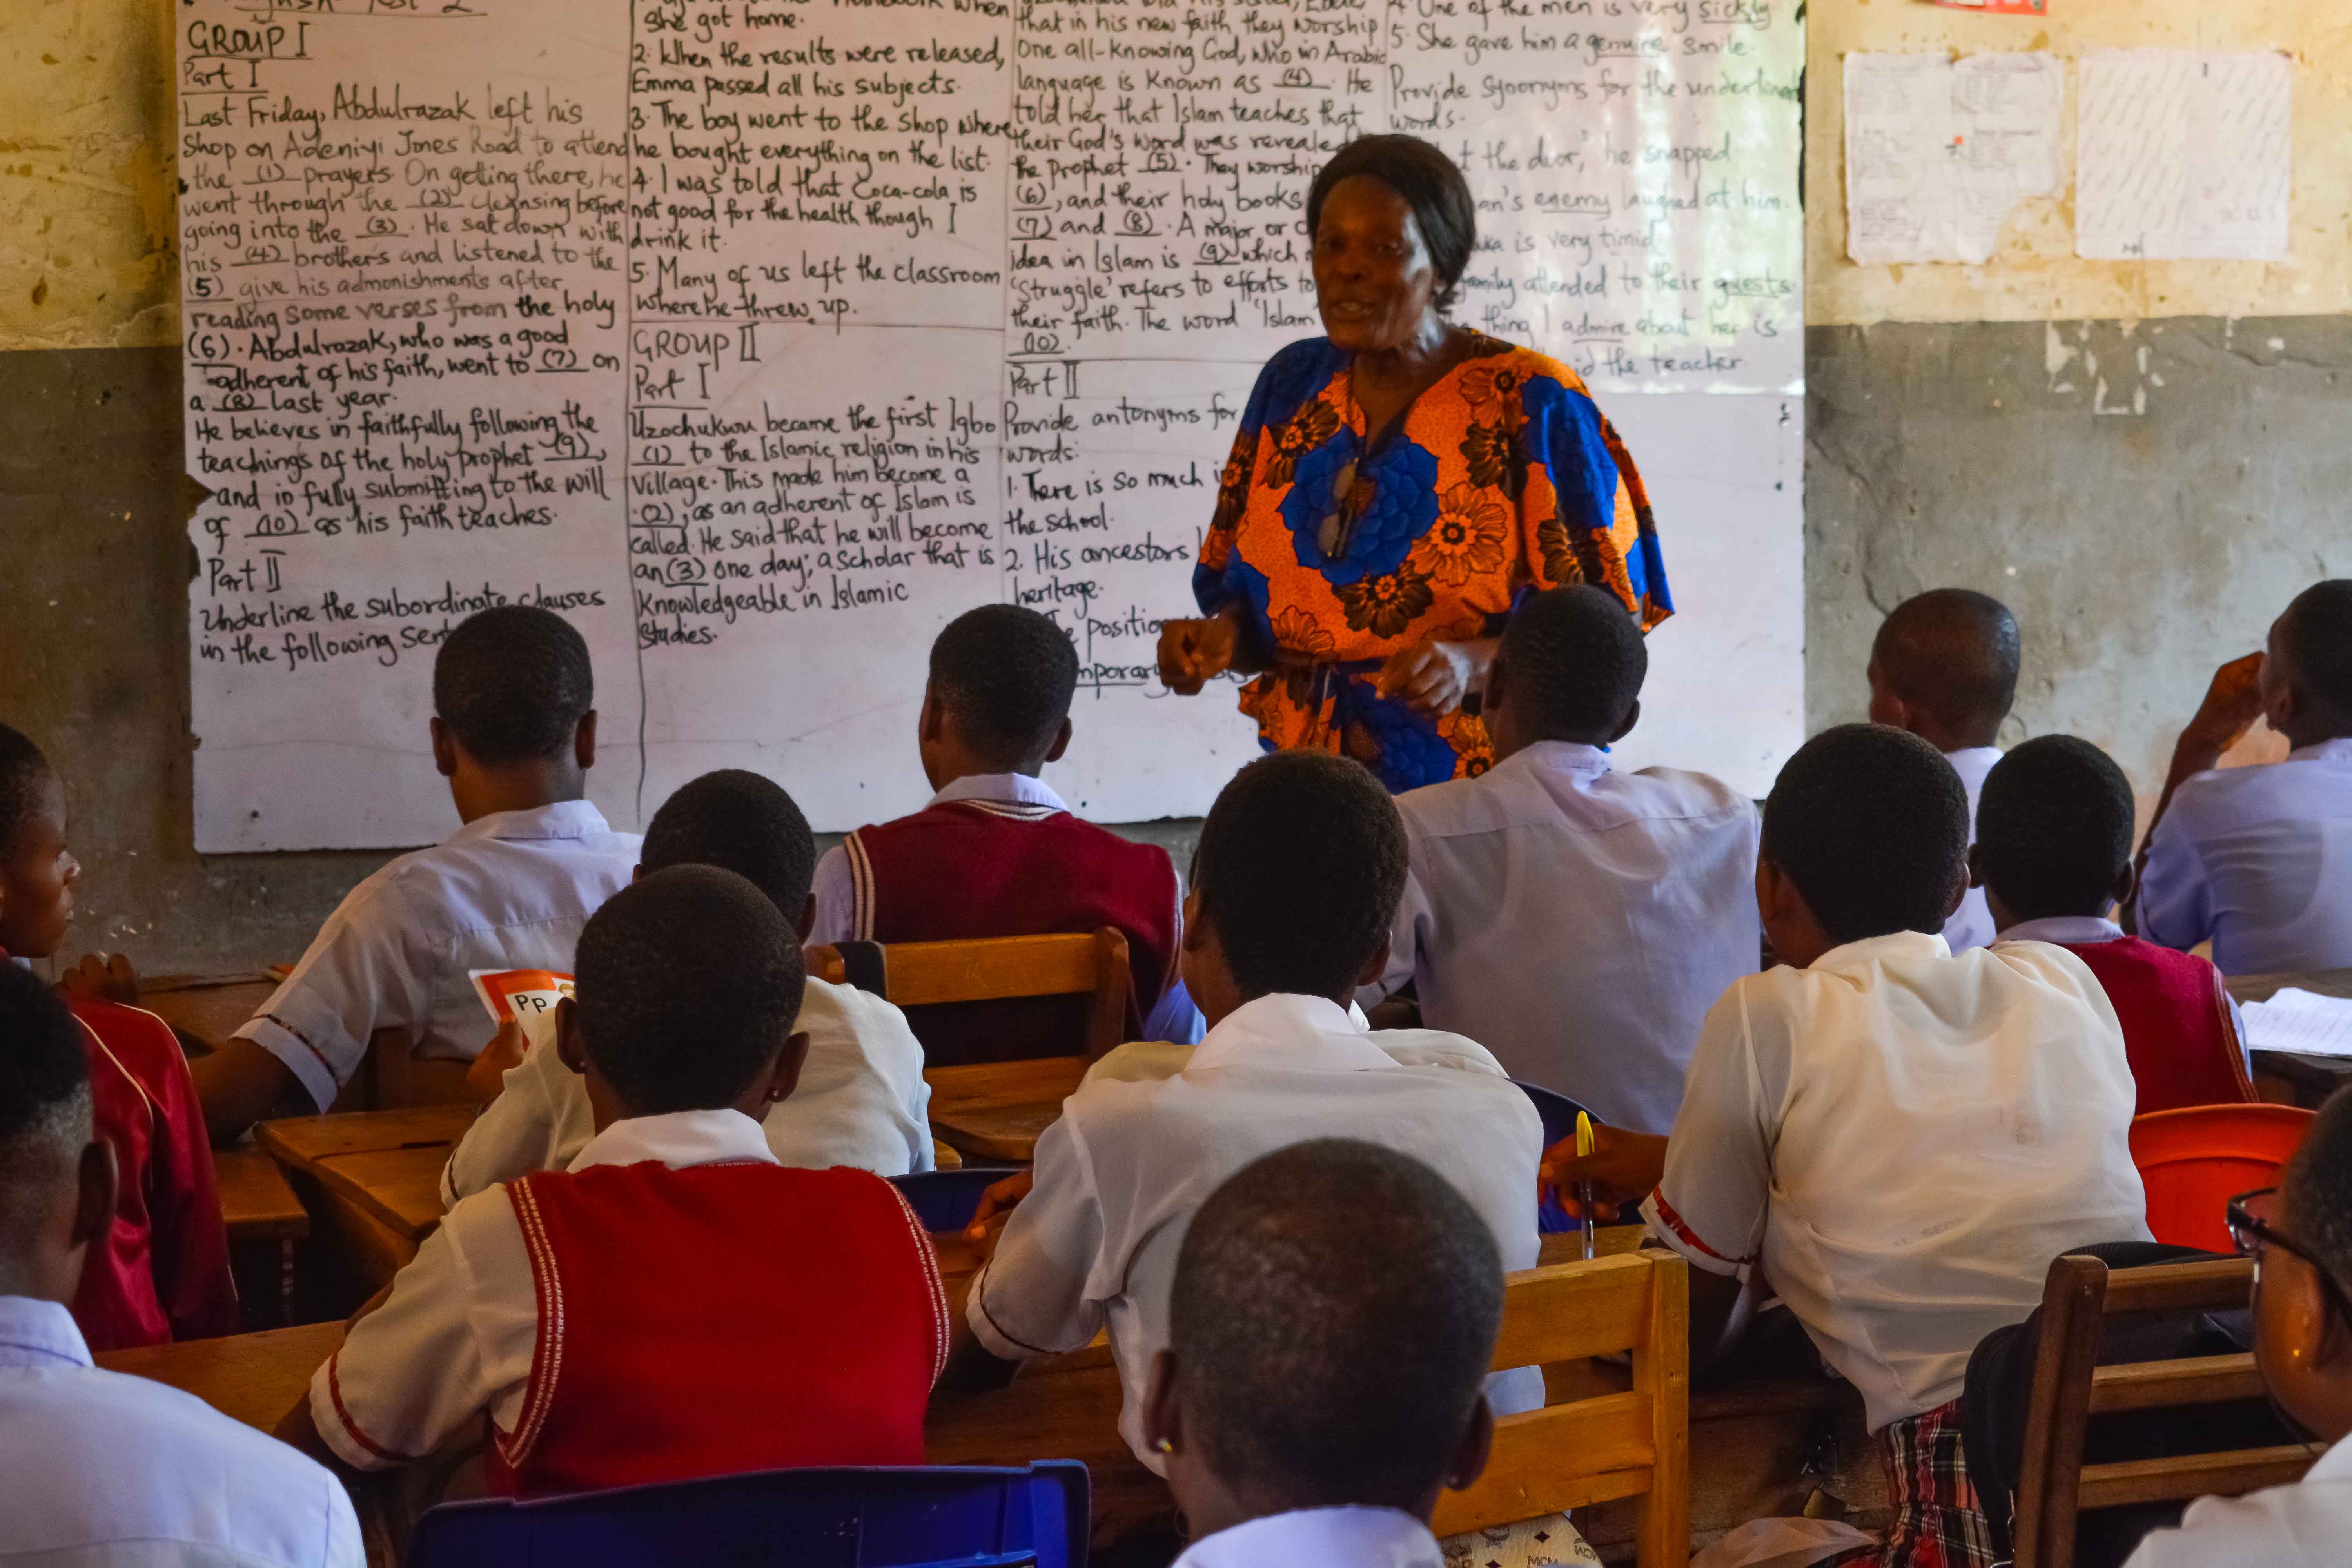 GROUP I
Part I
Last Friday, Abdulrazak left his
Shop on Adeniyi Jones Road to attend
the (1) prayers. On getting there, he
went through the (2) cleansing before
going into the (3). He sat down with
his (4) brothers and listened to the
(5) give his admonishments after
reading some verses from the holy
(6). Abdulrazak, who was a good
adherent of his faith, went to (7) on
a (8) last year.
He believes in faithfully following the
teachings of the holy prophet (9),
and in fully submitting to the will
of (10) as his faith teaches.
Part II
Underline the subordinate clauses
in the following
when
she got home.
2. When the results were released,
Emma passed all his subjects.
3. The boy went to the shop where
he bought everything on the list.
4. I was told that Coca-cola is
not good for the health though I
drink it.
5. Many of us left the classroom
where he threw up.
GROUP II
Part I
Uzochukwu became the first Igbo
(1) to the Islamic religion in his
village. This made him become a
(2); as an adherent of Islam is
called. He said that he will become
an (3) one day; a scholar that is
knowledgeable in Islamic
Studies.
that in his new faith they worship
One all-knowing God, who in Arabic
language is known as (4). He
told her that Islam teaches that
their God's word was revealed
the prophet (5). They worship
(6), and their holy books
(7) and (8). A major or
idea in Islam is (9) which
'struggle' refers to efforts to
their faith. The word 'Islam
(10).
Part II
Provide antonyms for
words:
1. There is so much
the school.
2. His ancestors
heritage.
position
4. One of the men is very sickly
5. She gave him a genuine smile.
Provide synonyms for the underlined
words.
the door," he snapped
enemy laughed at him.
is very timid
family attended to their guests.
thing I admire about her is
the teacher
Pp
MCM